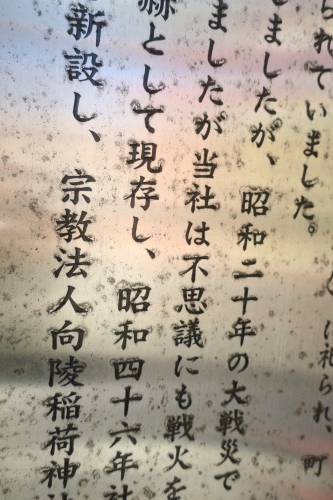 に祀られ、町
られていました。
しましたが、昭和二十年の大戦災で
ましたが当社は不思議にも戦火を
赫として現存し、昭和四十六年社
新設し、宗教法人向陵稲荷神社